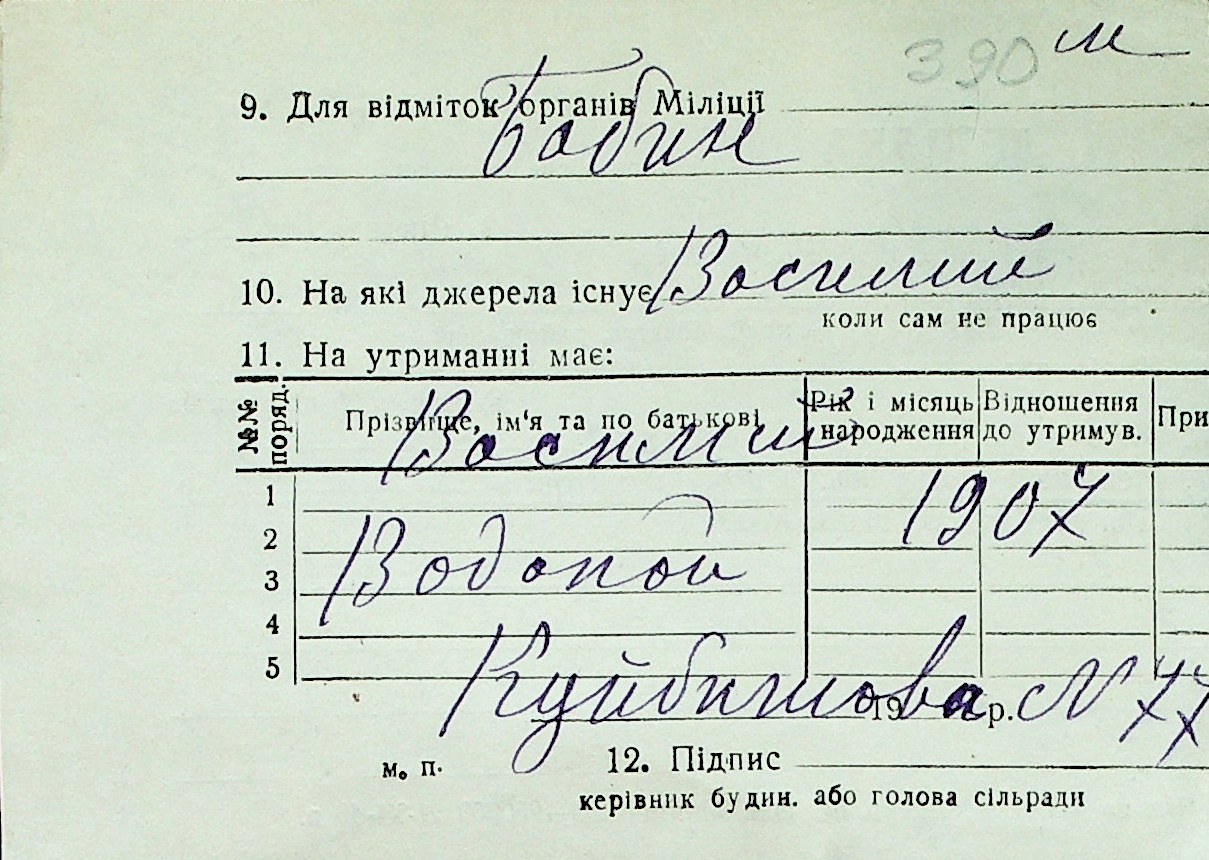 390 м
9. Для відміток органів Міліції
Бабин
10. На які джерела існує Василий
коли сам не працює
11. На утриманні має:
№№ поряд. Прізвище, ім'я та по батькові Рік і місяць народження Відношення до утримув. При
Василий
1 1907
2
3 Водопой
4
5
Куйбишова № 77
19 р.
м. п. 12. Підпис
керівник будин. або голова сільради